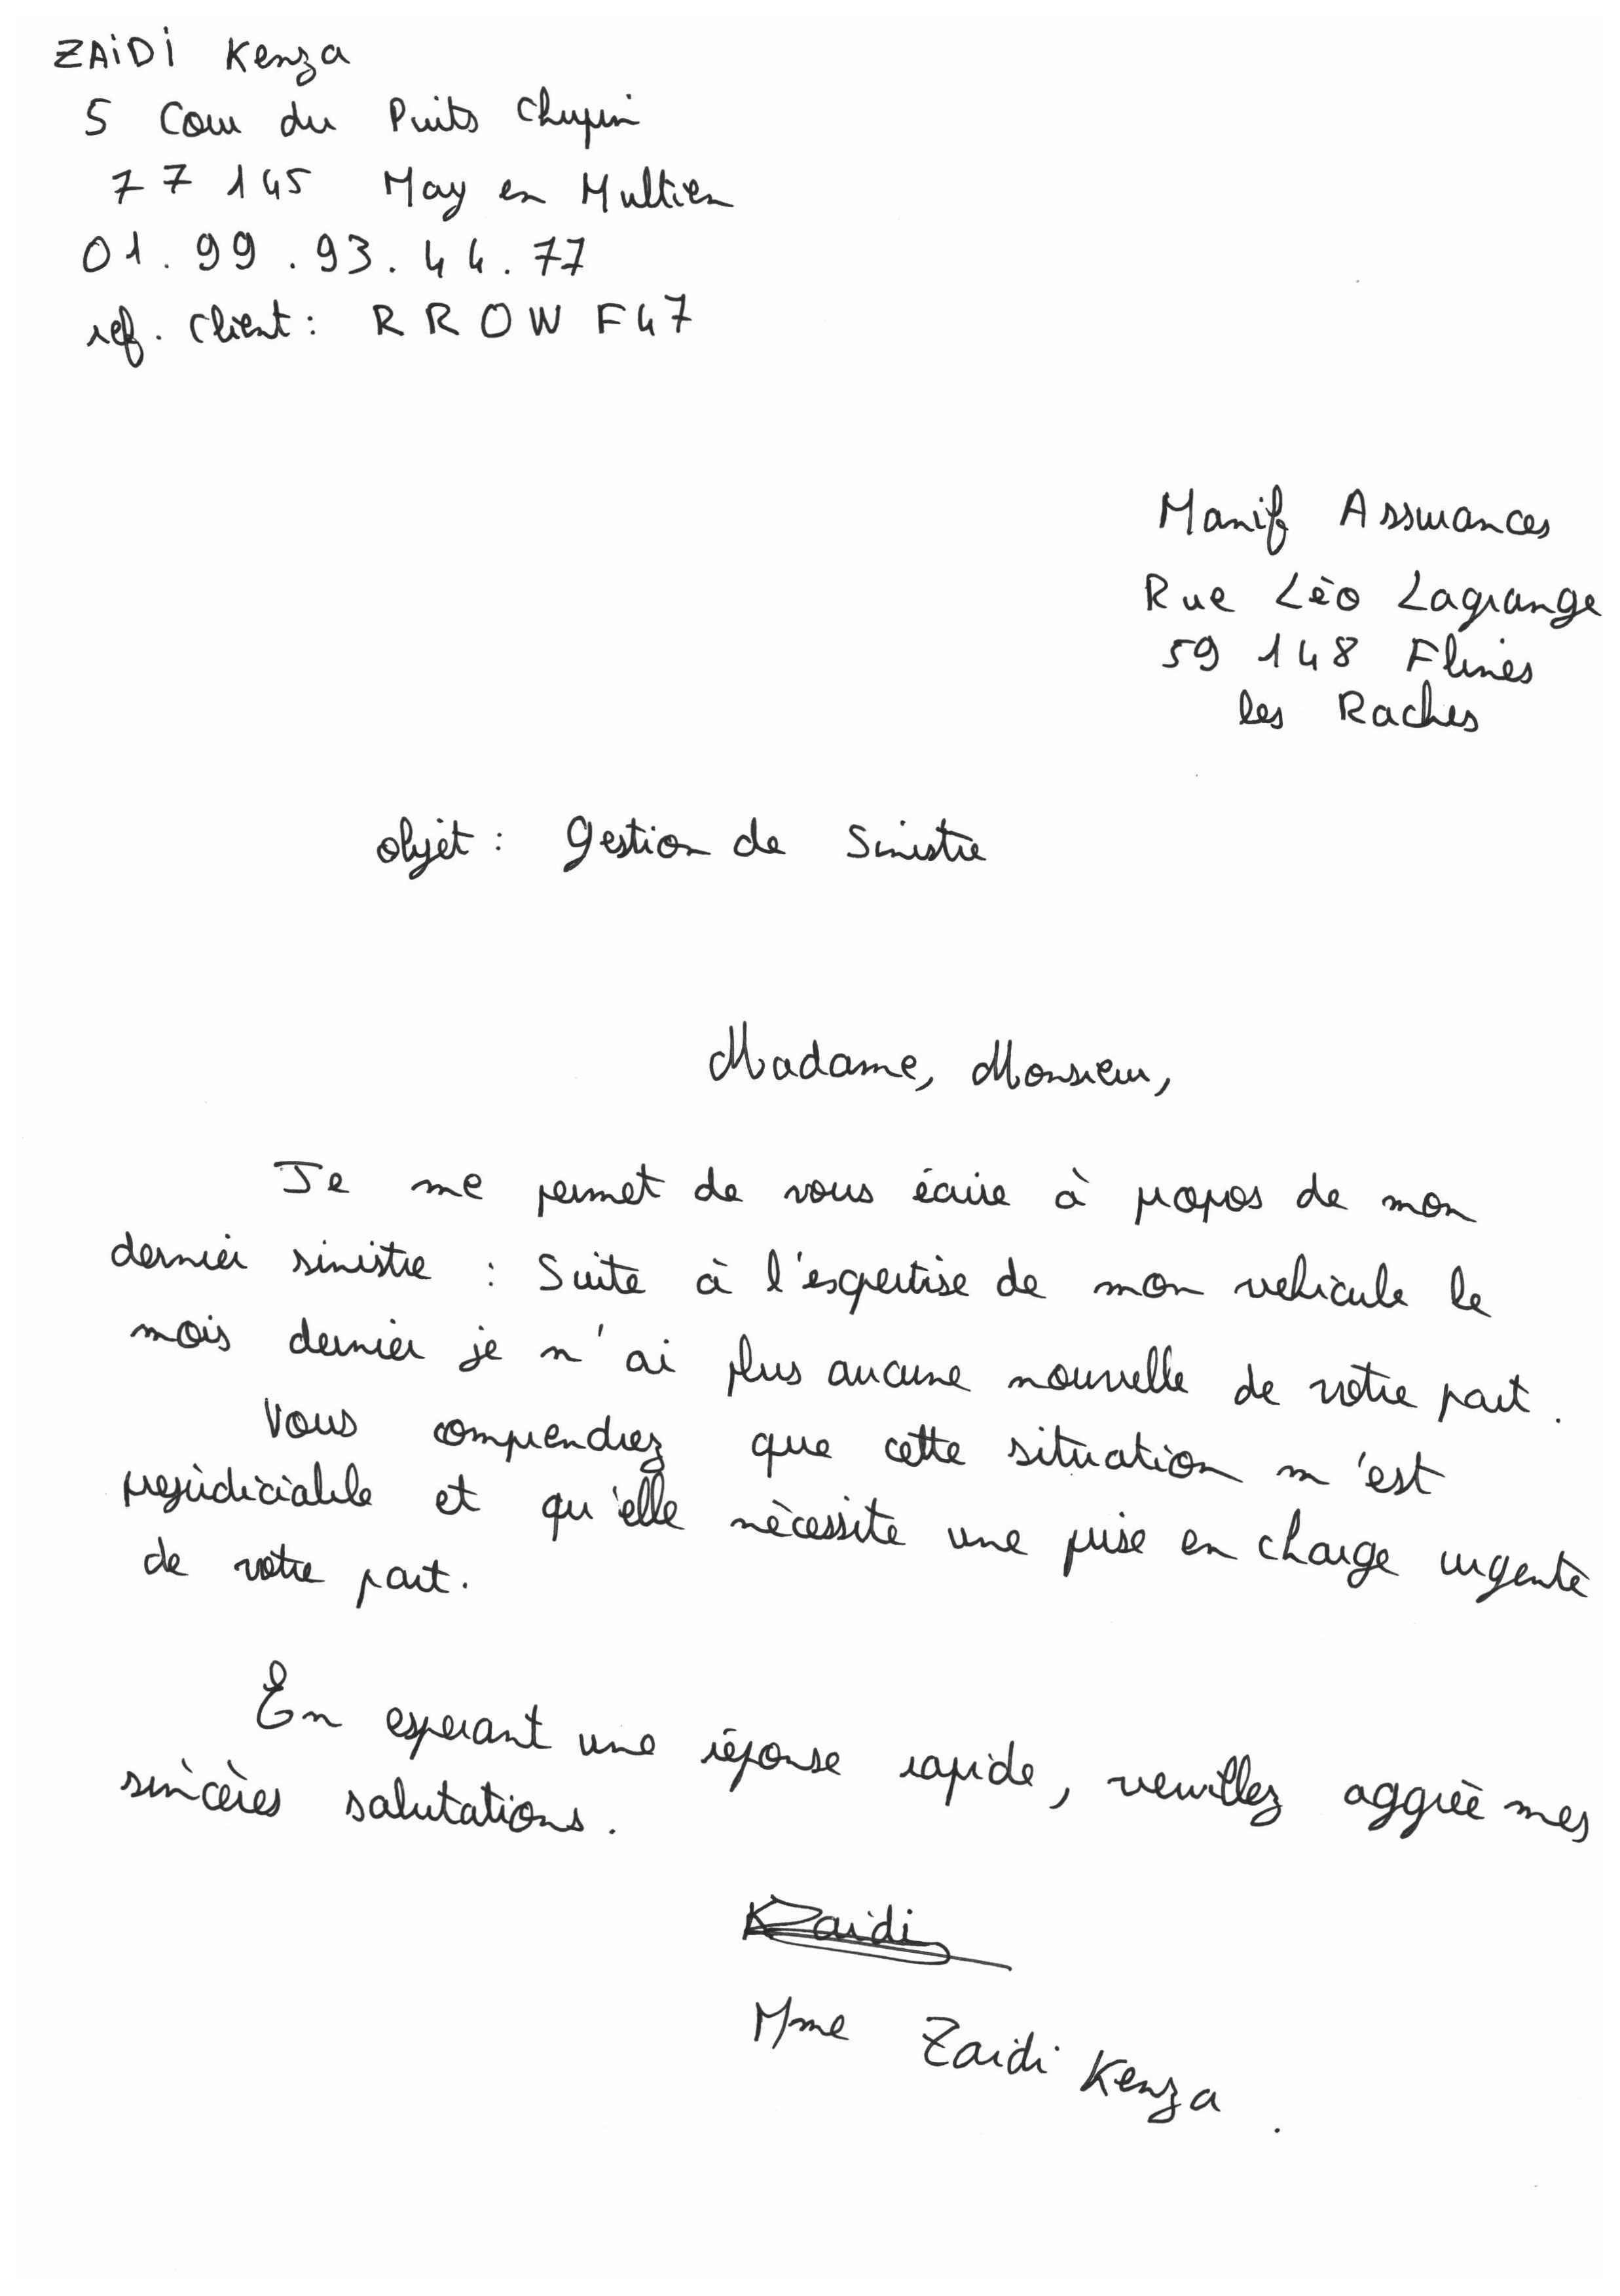 ZAiDi Kenza
5 Cour du Puits Chupin
77 145 May en Multien
01.99.93.44.77
ref. client : RROWF47
Manif Assurances
Rue Léo Lagrange
59 148 Flines
les Raches
objet : Gestion de Sinistre
Madame, Monsieur,
Je me permet de vous écrire à propos de mon
dernier sinistre : Suite à l'expertise de mon vehicule le
mois dernier je n'ai plus aucune nouvelle de votre part.
Vous comprendrez que cette situation m'est
prejudiciable et qu'elle nécessite une prise en charge urgente
de votre part.
En esperant une réponse rapide, veuillez aggréé mes
sincères salutations.
KZaidi
Mme Zaidi Kenza.